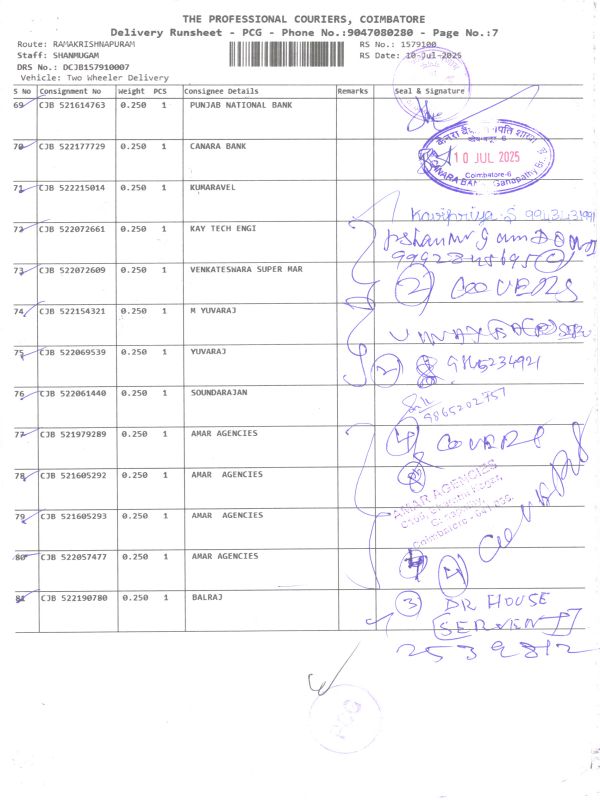 THE PROFESSIONAL COURIERS, COIMBATORE
Delivery Runsheet - PCG - Phone No.:9047080280 - Page No.:7
Route: RAMAKRISHNAPURAM
RS No.: 1579100
Staff: SHANMUGAM
RS Date: 10-Jul-2025
DRS No.: DCJB157910007
Vehicle: Two Wheeler Delivery
S No Consignment No Weight PCS Consignee Details Remarks Seal & Signature
69 CJB 521614763 0.250 1 PUNJAB NATIONAL BANK
70 CJB 522177729 0.250 1 CANARA BANK
10 JUL 2025
Coimbatore-6
CANARA BANK, Ganapathy
71 CJB 522215014 0.250 1 KUMARAVEL
Kavipriya.S
72 CJB 522072661 0.250 1 KAY TECH ENGI
73 CJB 522072609 0.250 1 VENKATESWARA SUPER MAR
2 COOVERS
74 CJB 522154321 0.250 1 M YUVARAJ
75 CJB 522069539 0.250 1 YUVARAJ
2
76 CJB 522061440 0.250 1 SOUNDARAJAN
9865202757
77 CJB 521979289 0.250 1 AMAR AGENCIES
4 COOVERS
78 CJB 521605292 0.250 1 AMAR AGENCIES
AMAR AGENCIES
79 CJB 521605293 0.250 1 AMAR AGENCIES
80 CJB 522057477 0.250 1 AMAR AGENCIES
4
81 CJB 522190780 0.250 1 BALRAJ
3 DR HOUSE
SERVENT
2539812
PCG